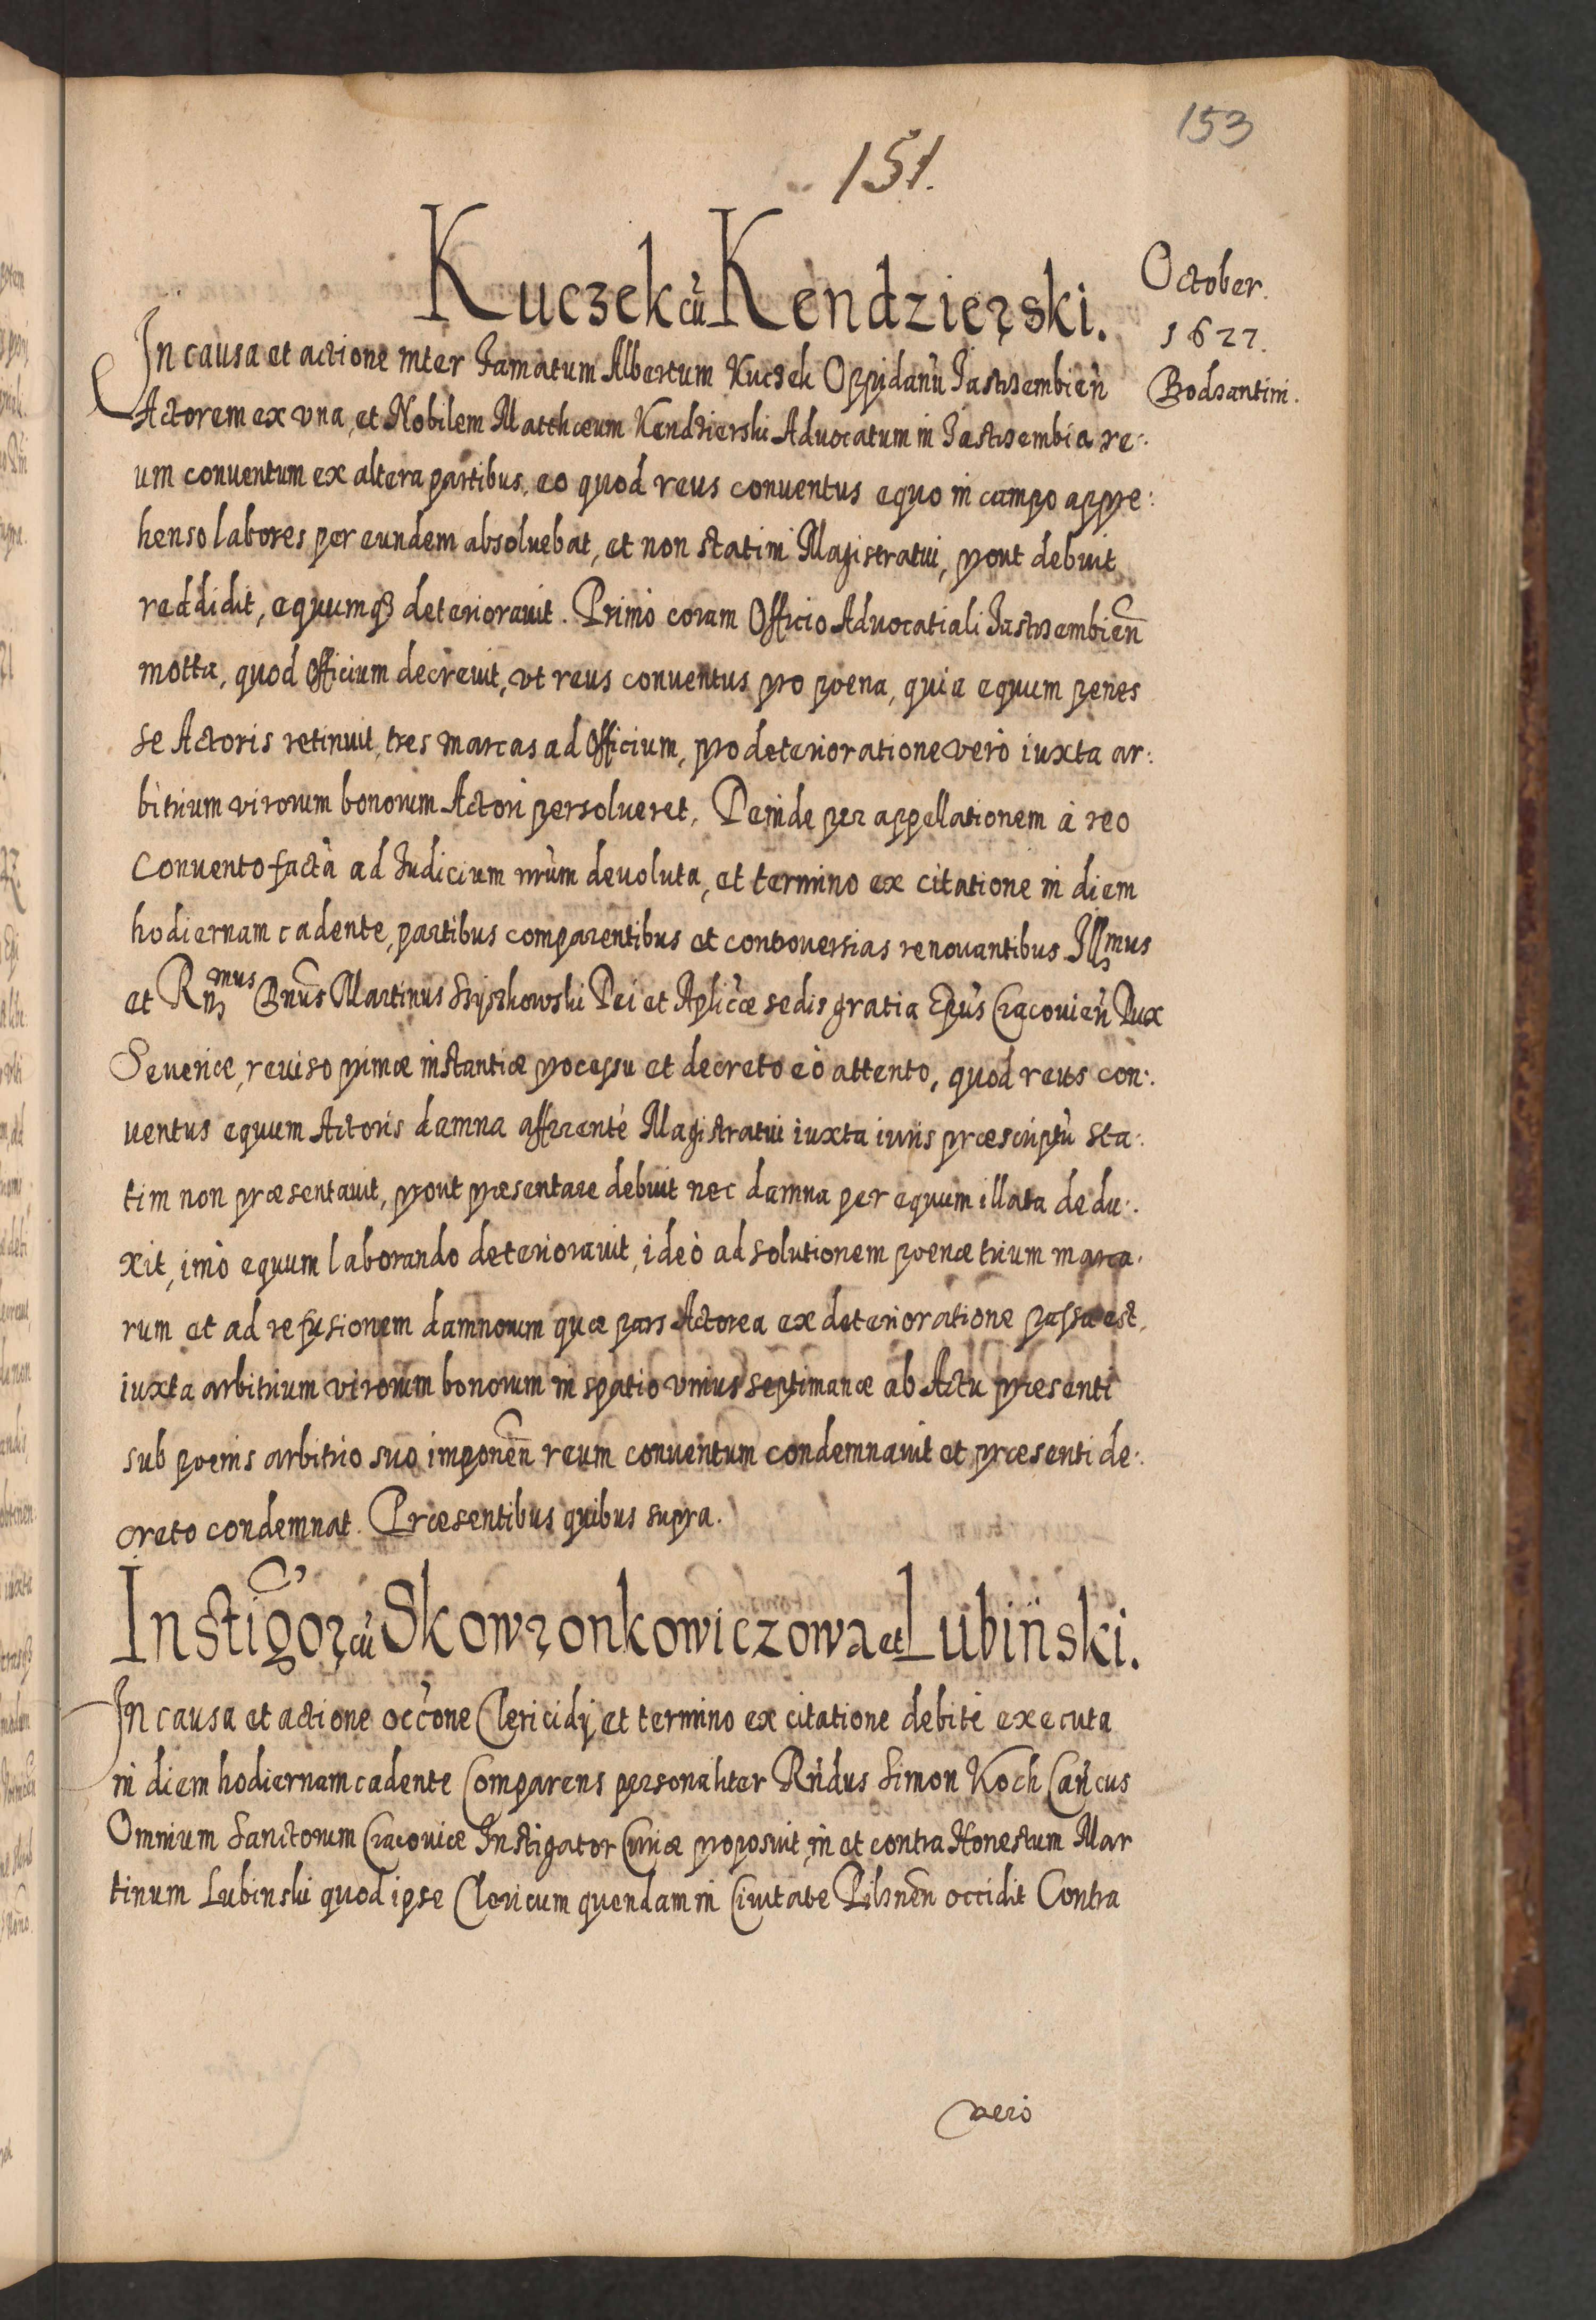 153
151.
October.
1627.
Bodzantini.
Kuczek cũ Kendzierski.
In causa et actione inter Famatum Albertum Kuczek Oppidanũ Jastrzembień
Actorem ex vna, et Nobilem Matthæum Kendzierski Aduocatum in Jastrzembia re:
um conuentum ex altera partibus, eo quod reus conuentus equo in campo appre:
henso labores per eundem absoluebat, et non statim Magistratui, prout debuit
reddidit, equumq₃ deteriorauit. Primò coram Officio Aduocatiali Jastrzembień
motta, quod Officium decreuit, vt reus conuentus pro poena, quia equum penes
se Actoris retinuit, tres marcas ad Officium, pro deterioratione verò iuxta ar:
bitrium virorum bonorum Actori persolueret, Deinde per appellationem à reo
Conuento factà ad Iudicium nrũm deuoluta, et termino ex citatione in diem
hodiernam cadente, partibus comparentibus et controuersias renouantibus Illmus
et Rnmus Dnus Martinus Szyszkowski Dei et Aplicæ sedis gratia Epus Cracouień Dux
Seueriæ, reuiso primæ instantiæ processu et decreto eò attento, quod reus con:
uentus equum Actoris damna afferente Magistratui iuxta iuris præscriptũ sta:
tim non præsentauit, prout præsentare debuit nec damna per equum illata dedu:
xit, imò equum laborando deteriorauit, ideò ad solutionem poenæ trium marca:
rum et ad refusionem damnorum quæ pars Actorea ex deterioratione passa est,
iuxta arbitrium virorum bonorum in spatio vnius septimanæ ab Actu præsenti
sub poenis arbitrio suo imponeñ reum conuentum condemnauit et præsenti de:
creto condemnat. Præsentibus quibus supra.
Instigor cũ Skowronkowiczowa et Lubiński.
In causa et actione occõne Clericidij et termino ex citatione debitè executa
in diem hodiernam cadente Comparens personaliter Rńdus Simon Koch Cańcus
Omnium Sanctorum Cracouiæ Instigator Curiæ proposuit in et contra Honestum Mar
tinum Lubinski quod ipse Clericum quendam in Ciuitate Pilzneñ occidit Contra
verò